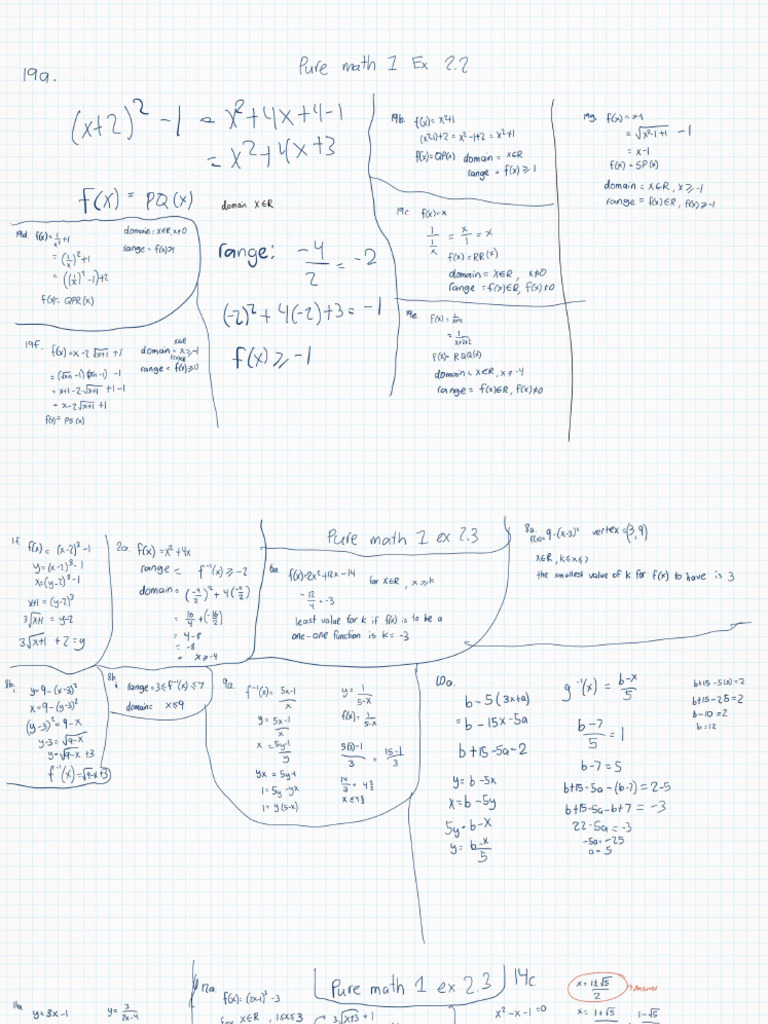 Pure math 1 Ex 2.2
19a.
(x+2)² - 1 = x²+4x+4-1
= x²+4x+3
f(x) = PQ(x)
domain x∈R
range: -4/2 = -2
(-2)² + 4(-2)+3 = -1
f(x) ≥ -1
19b. f(x) = x²+1
(x²-1)+2 = x²-1+2 = x²+1
f(x)=QP(x) domain = x∈R
range = f(x) ≥ 1
19c f(x)=x
1/(1/x) = x/1 = x
f(x)=RR(x)
domain = x∈R, x≠0
range = f(x)∈R, f(x)≠0
19d. f(x) = 1/x² + 1
= (1/x)² + 1
= ((1/x)² - 1)+2
f(x)= QPR(x)
domain = x∈R, x≠0
range = f(x)>1
19e. f(x)= 1/(x+4)
= 1/(x+2+2)
f(x)= RQQ(x)
domain = x∈R, x≠-4
range = f(x)∈R, f(x)≠0
19f. f(x)= x-2√(x+1) +1
= x+1-2√(x+1) +1-1
= x-2√(x+1) +1
f(x)= PS(x)
x∈R
domain = x≥-1
range = f(x)≥0
19g. f(x)= x-1
= √(x²-1+1) -1
= x-1
f(x)= SP(x)
domain = x∈R, x≥-1
range = f(x)∈R, f(x)≥-1
Pure math 1 ex 2.3
1f. f(x) = (x-2)³-1
y= (x-2)³-1
x=(y-2)³-1
x+1 = (y-2)³
3√(x+1) = y-2
3√(x+1) + 2 = y
2a. f(x) = x²+4x
range = f⁻¹(x) ≥ -2
domain = (-4/2)² + 4(-4/2)
= 16/4 + (-16/2)
= 4-8
= -8
= x≥-4
6a. f(x)=2x²+12x-14 for x∈R, x≥k
-12/4 = -3
least value for k if f(x) is to be a
one-one function is k= -3
8a. f(x)= 9-(x-3)² vertex = (3,9)
x∈R, k≤x≤7
the smallest value of k for f(x) to have is 3
8b. i. y= 9-(x-3)²
x= 9-(y-3)²
(y-3)² = 9-x
y-3 = √(9-x)
y= √(9-x) +3
f⁻¹(x) = √(9-x)+3
8b. range = 3≤f⁻¹(x)≤7
domain = x≤9
9a. f⁻¹(x) = (5x-1)/x
y = (5x-1)/x
x = (5y-1)/y
yx = 5y-1
1 = 5y-yx
1 = y(5-x)
y= 1/(5-x)
f(x)= 1/(5-x)
14/3 = 4⅔
x≤4⅔
10a. b-5(3x+a)
= b-15x-5a
b+15-5a=2
y= b-5x
x= b-5y
5y= b-x
y= (b-x)/5
g⁻¹(x) = (b-x)/5
(b-7)/5 = 1
b-7 = 5
b+15-5a-(b-7) = 2-5
b+15-5a-b+7 = -3
22-5a = -3
-5a= -25
a= 5
b+15-5(5) = 2
b+15-25 = 2
b-10 = 2
b=12
Pure math 1 ex 2.3
y= 3x-1
12a. f(x)= (2x-1)² -3
14c. x²-x-1=0
x = (1±√5)/2 → Answer
x = (1+√5) (1-√5)